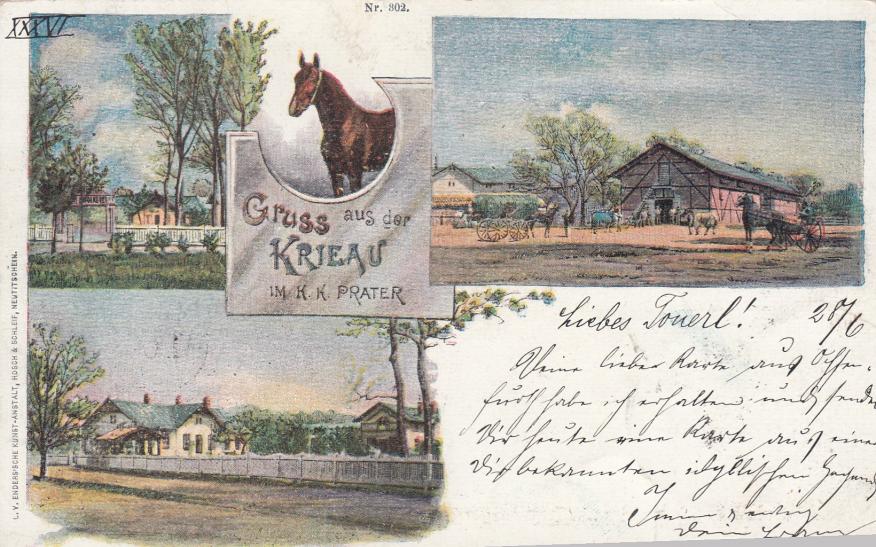 XXXVI
Nr. 302.
Gruss aus der
KRIEAU
IM K. K. PRATER
L. V. ENDERS'SCHE KUNST-ANSTALT, HOSCH & SCHLEIF, NEUTITSCHEIN.
Liebes Tonerl! 28/6
Deine liebe Karte aus
habe ich erhalten und sende
Dir heute eine Karte aus einer
Dir bekannten idyllischen Gegend
Dein